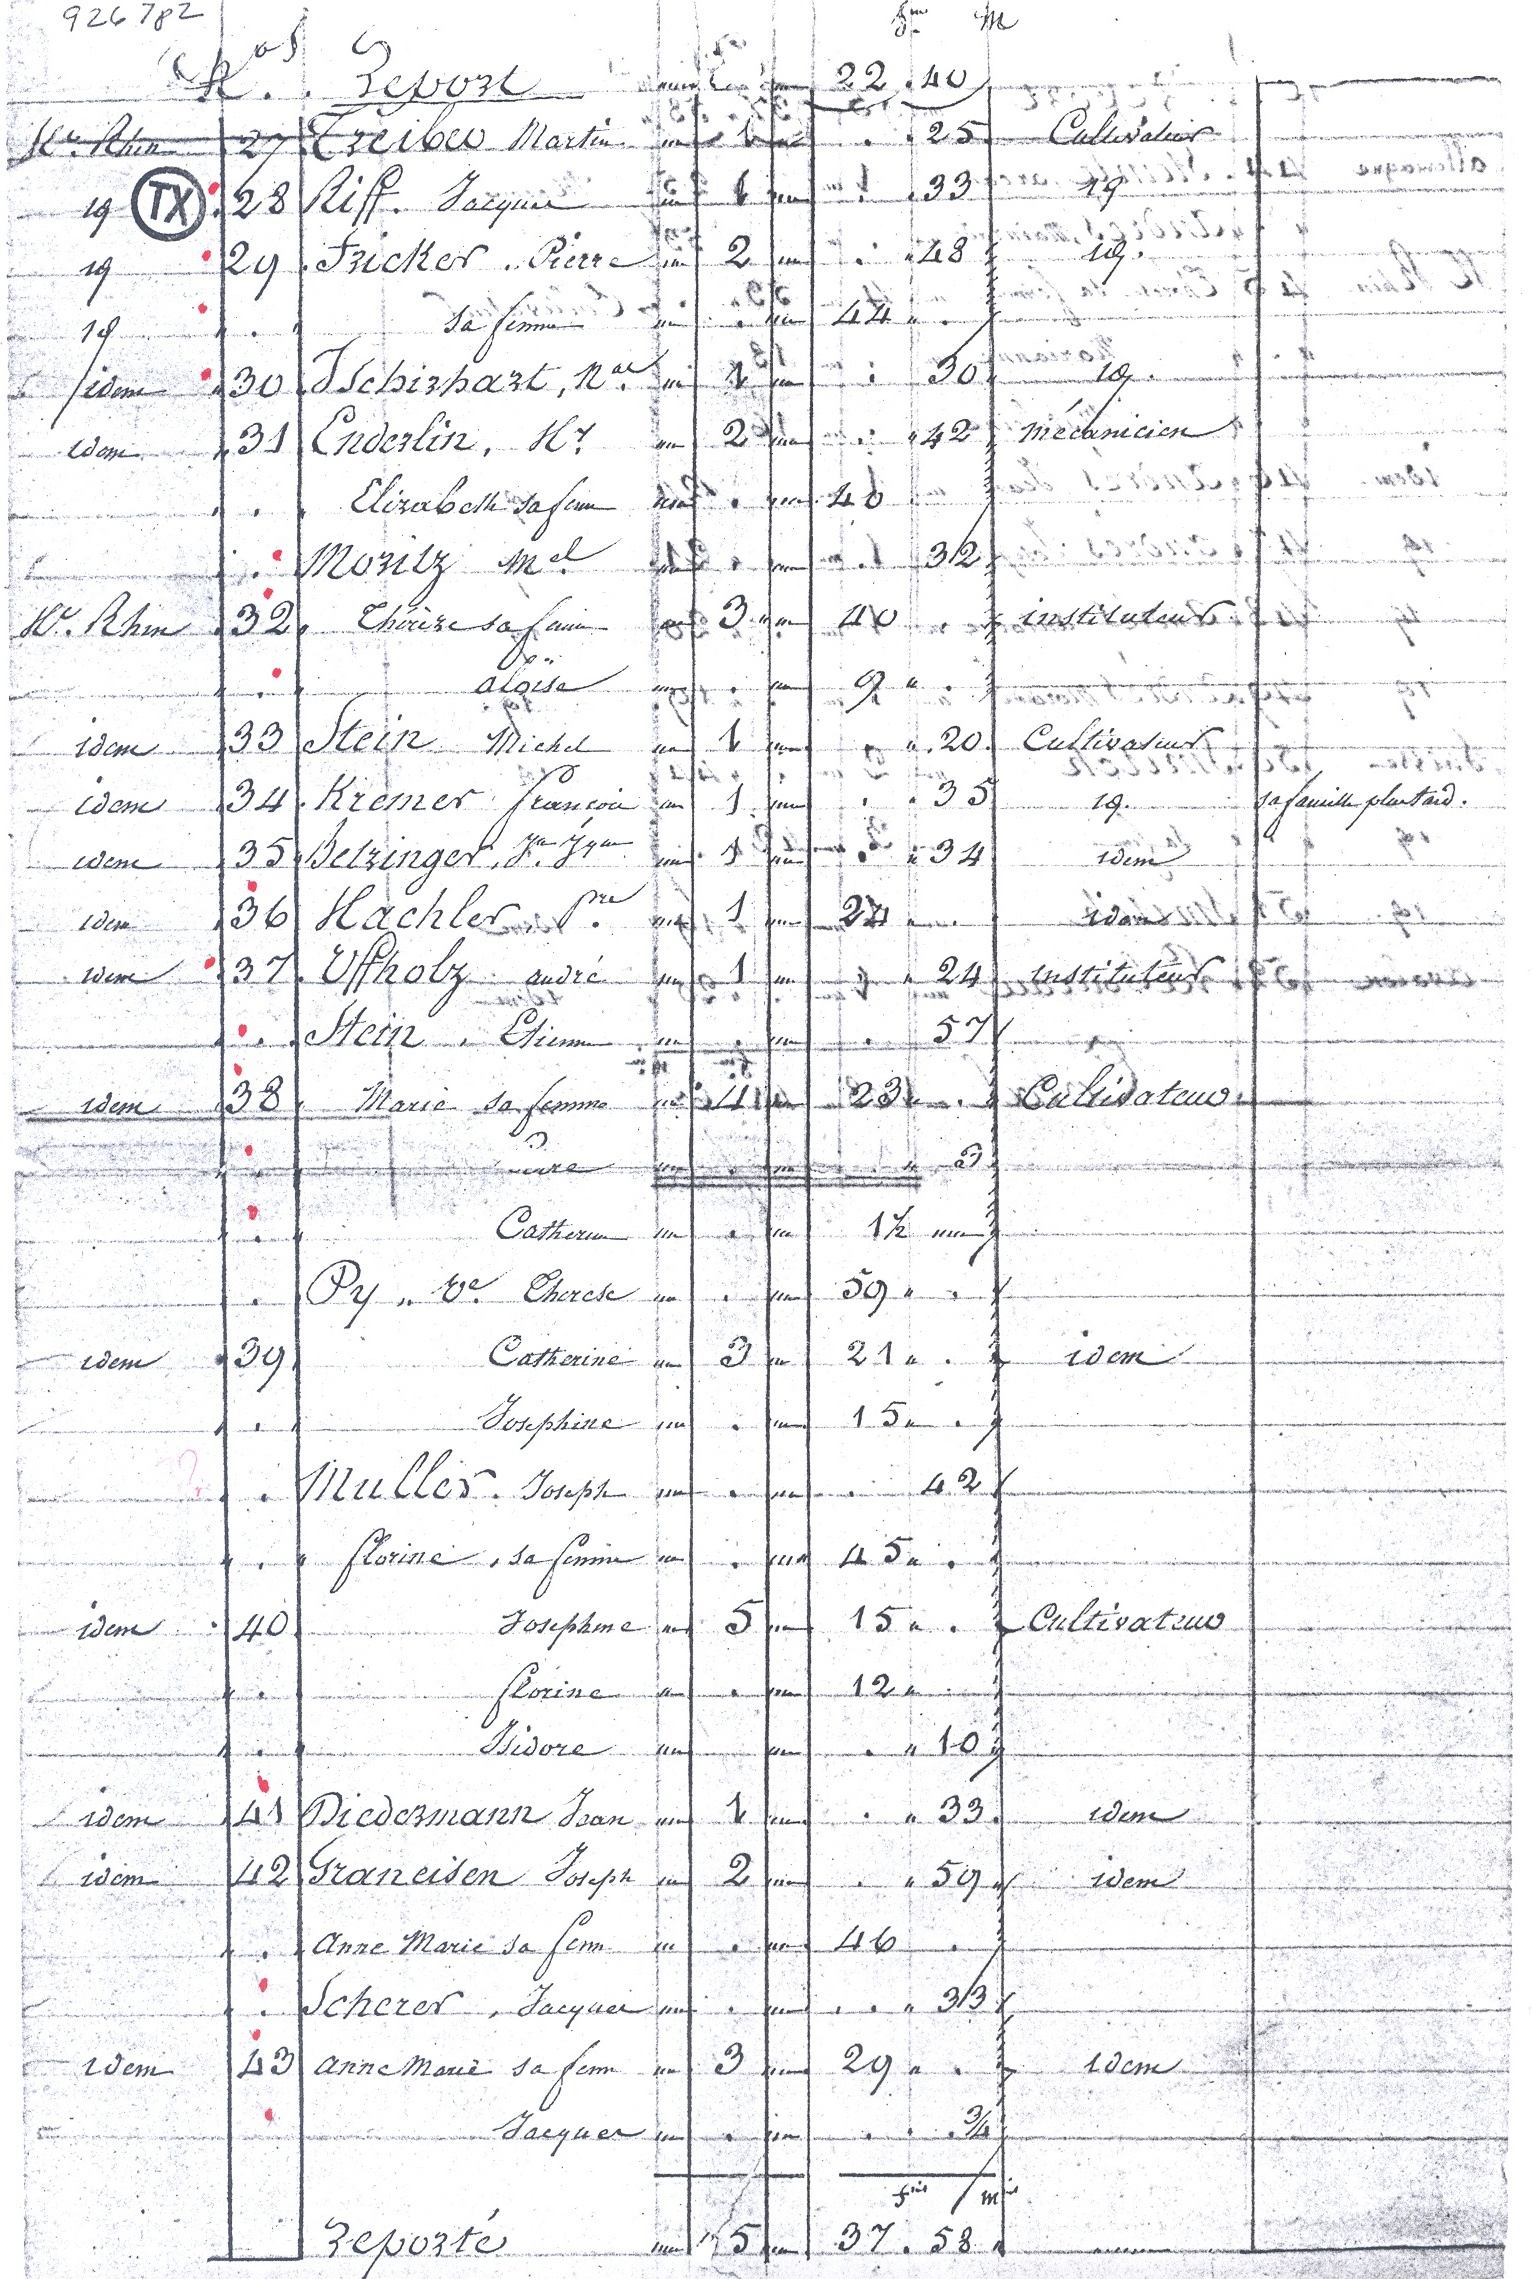 926782
fm M
Nos Report 22 . 40
Ht. Rhin 27 Treiber Martin 1 25 Cultivateur
id TX 28 Riff. Jacques 1 33 id
id 29 Fricker . Pierre 2 48 id.
id sa femme 44
idem 30 Tschirhart, 1 30 id.
idem 31 Enderlin, Hy 2 42 mécanicien
Elizabeth sa femme 40
Moritz Mel 32
Ht. Rhin 32 Thérèze sa femme 3 40 instituteur
aloïse 9
idem 33 Stein Michel 1 20 Cultivateur
idem 34 Kremer françois 1 35 id. sa famille plus tard.
idem 35 Belzinger, 1 34 idem
idem 36 Hachler Pre 1 idem
idem 37 Uffholz andré 1 24 instituteur
Stein . Etienne 57
idem 38 Marie sa femme 4 23 Cultivateur
3
Catherine 1½
Py " Ve. Therese 59
idem 39 Catherine 3 21 idem
Josephine 15
Muller . Joseph 42
florine , sa femme 45
idem 40 Josephine 5 15 Cultivateur
florine 12
Isidore 10
idem 41 Diedermann Jean 1 33 idem
idem 42 Graneisen Joseph 2 59 idem
anne Marie sa fem 46
Scherer , Jacques 33
idem 43 anne Marie sa fem 3 29 idem
Jacques ¾
fm m
Reporté 37 . 58